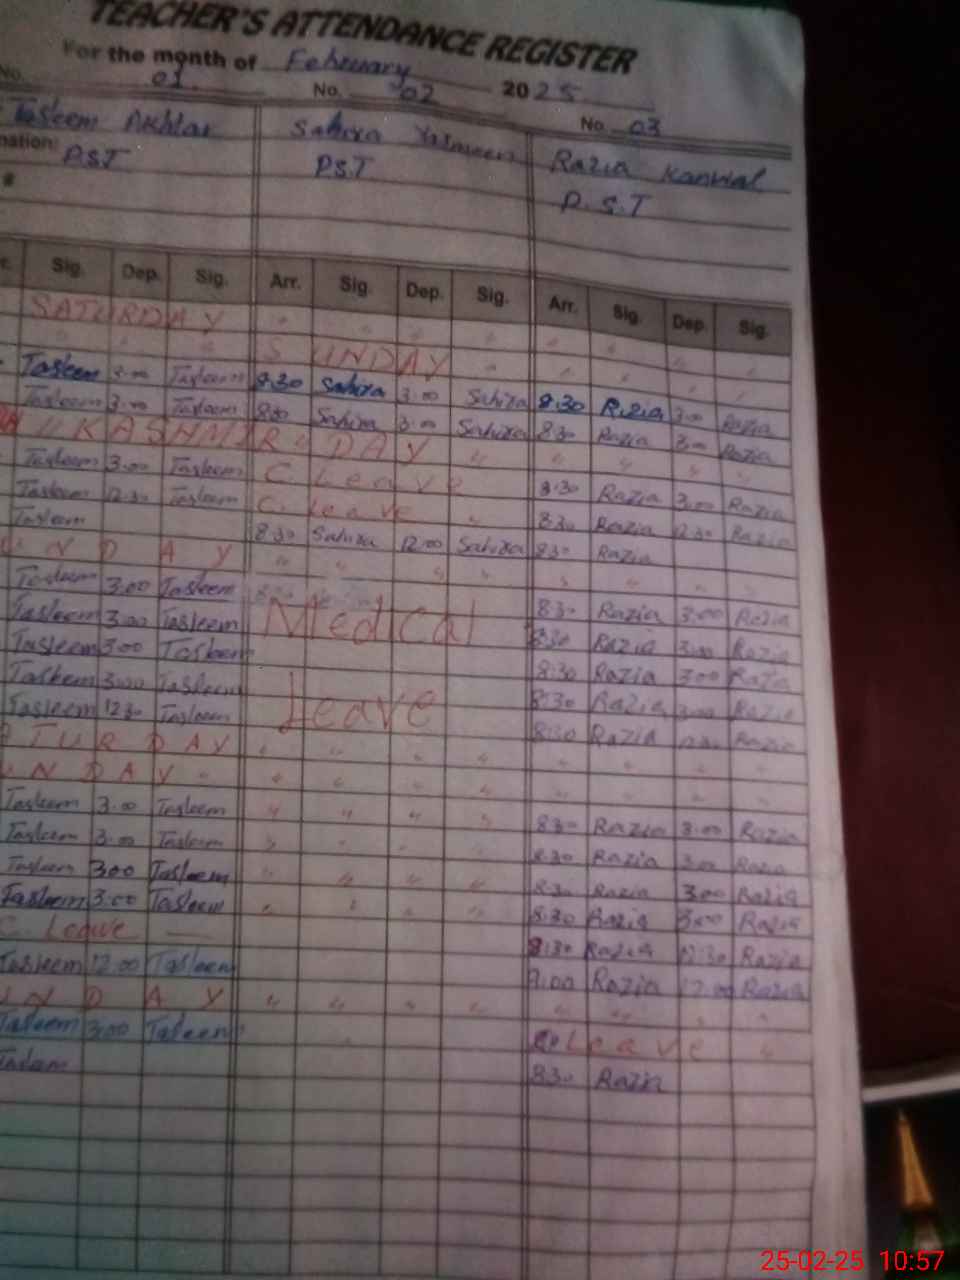 TEACHER'S ATTENDANCE REGISTER
For the month of February 2025
No. 01. No. 02 No 03
Tasleem Akhtar Sahira Yasmeen Razia Kanwal
nation: P.S.T P.S.T P.S.T
#
r. Sig. Dep. Sig. Arr. Sig. Dep. Sig. Arr. Sig. Dep. Sig.
SATURDAY " " " " " " " "
" " SUNDAY " " " " "
Tasleem 3.00 Tasleem 8.30 Sahira 3.00 Sahira 8.30 Razia 3.00 Razia
Tasleem 3.00 Tasleem 8.30 Sahira 3.00 Sahira 8.30 Razia 3.00 Razia
KASHMIR DAY " " " " "
Tasleem 3.00 Tasleem C. Leave 8.30 Razia 3.00 Razia
Tasleem 12.30 Tasleem C. Leave " 8.30 Razia 12.30 Razia
Tasleem 8.30 Sahira 12.00 Sahira 8.30 Razia
UNDAY " " " " " " " "
Tasleem 3.00 Tasleem 8.30 Razia 3.00 Razia
Tasleem 3.00 Tasleem Medical 8.30 Razia 3.00 Razia
Tasleem 3.00 Tasleem 8:30 Razia 3.00 Razia
Tasleem 3.00 Tasleem Leave 8:30 Razia 3.00 Razia
Tasleem 12.30 Tasleem 8:30 Razia Razia
TURDAY " " " " " " " "
UNDAY " " " " " " " " "
Tasleem 3.00 Tasleem " " " " 8.30 Razia 3.00 Razia
Tasleem 3.00 Tasleem " " " " 8.30 Razia 3.00 Razia
Tasleem 3.00 Tasleem " " " " 8.30 Razia 3.00 Razia
Tasleem 3.00 Tasleem " " " " 8:30 Razia 3.00 Razia
C. Leave — 8:30 Razia 12:30 Razia
Tasleem 12.00 Tasleem 9.00 Razia 12.00 Razia
UNDAY " " " " " " " "
Tasleem 3.00 Tasleem Leave "
Tasleem 8.30 Razia
25-02-25 10:57